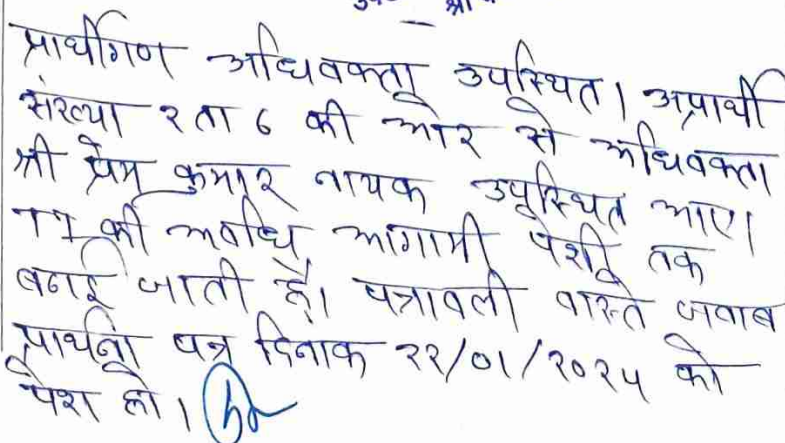 प्रार्थीगण अधिवक्ता उपस्थित। अप्रार्थी
संख्या २ ता ६ की ओर से अधिवक्ता
श्री प्रेम कुमार नायक उपस्थित आए।
TI की अवधि आगामी पेशी तक
बढाई जाती है। पत्रावली वास्ते जवाब
प्रार्थना पत्र दिनांक २२/०१/२०२५ को
पेश हो।